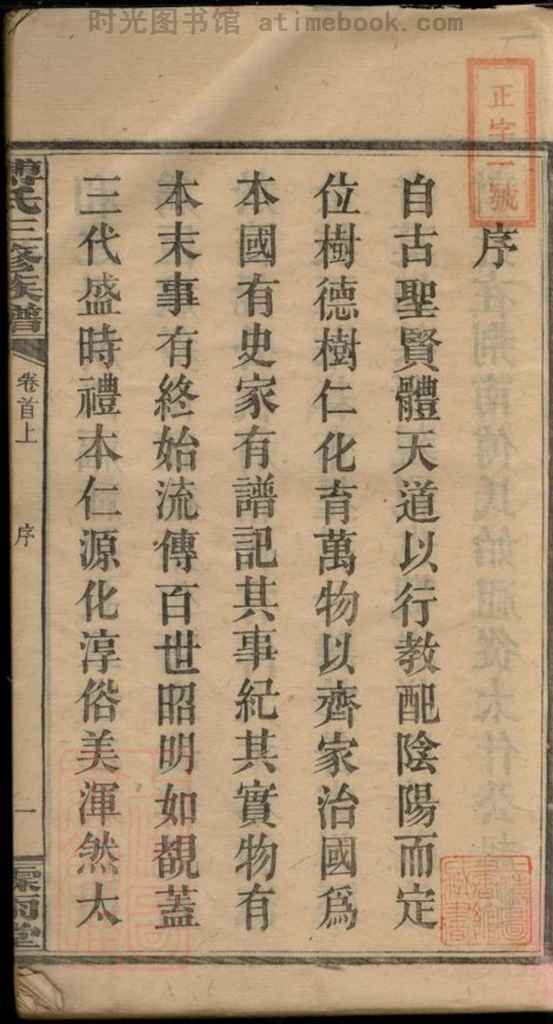 时光图书馆 atimebook.com
正字一號
序
自古聖賢體天道以行教配陰陽而定
位樹德樹仁化育萬物以齊家治國爲
本國有史家有譜記其事紀其實物有
本末事有終始流傳百世昭明如覩蓋
三代盛時禮本仁源化淳俗美渾然太
傅氏三修族譜
卷首上
序
一
霖雨堂